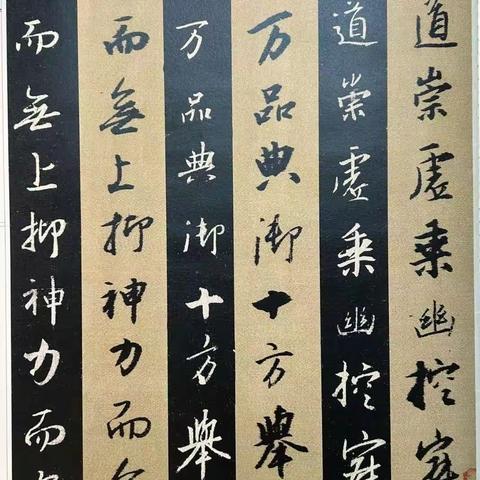 道崇虛乘幽控寂
道崇虛乘幽控寂
万品典御十方舉
万品典御十方舉
而無上抑神力而
而無上抑神力而